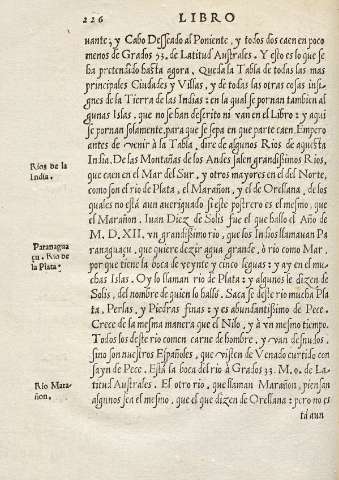 226 LIBRO
uante; y Cabo Desseado al Poniente, y todos dos caen en poco
menos de Grados 53. de Latitud Australes. Y esto es lo que se
ha pretendido hasta agora. Queda la Tabla de todas las mas
principales Ciudades y Villas, y de todas las otras cosas insi-
gnes de la Tierra de las Indias: en la qual se pornan tambien al
gunas Islas, que no se han descrito ni van en el Libro: y aqui
se pornan solamente, para que se sepa en que parte caen. Empero
antes de venir à la Tabla, dire de algunos Rios de aquesta
India. De las Montañas de los Andes salen grandissimos Rios,
Rios de la
India.
que caen en el Mar del Sur, y otros mayores en el del Norte,
como son el rio de Plata, el Marañon, y el de Orellana, de los
quales no està aun aueriguado si este postrero es el mesmo, que
el Marañon. Iuan Diez de Solis fue el que hallo el Año de
M. D. XII. vn grandissimo rio, que los Indios llamauan Pa
Paranagua
çu, Rio de
la Plata.
ranaguaçu, que quiere dezir agua grande, ò rio como Mar,
por que tiene la boca de veynte y cinco leguas: y ay en el mu-
chas Islas. Oy lo llaman rio de Plata: y algunos le dizen de
Solis, del nombre de quien lo hallò. Saca se deste rio mucha Pla
ta, Perlas, y Piedras finas: y es abundantissimo de Pece.
Crece de la mesma manera que el Nilo, y à vn mesmo tiempo.
Todos los deste rio comen carne de hombre, y van desnudos,
sino son nuestros Españoles, que visten de Venado curtido con
sayn de Pece. Està la boca del rio à Grados 33. M. 0. de La-
Rio Mara-
ñon.
titud Australes. El otro rio, que llaman Marañon, piensan
algunos sea el mesmo, que el que dizen de Orellana: pero no es
tà aun